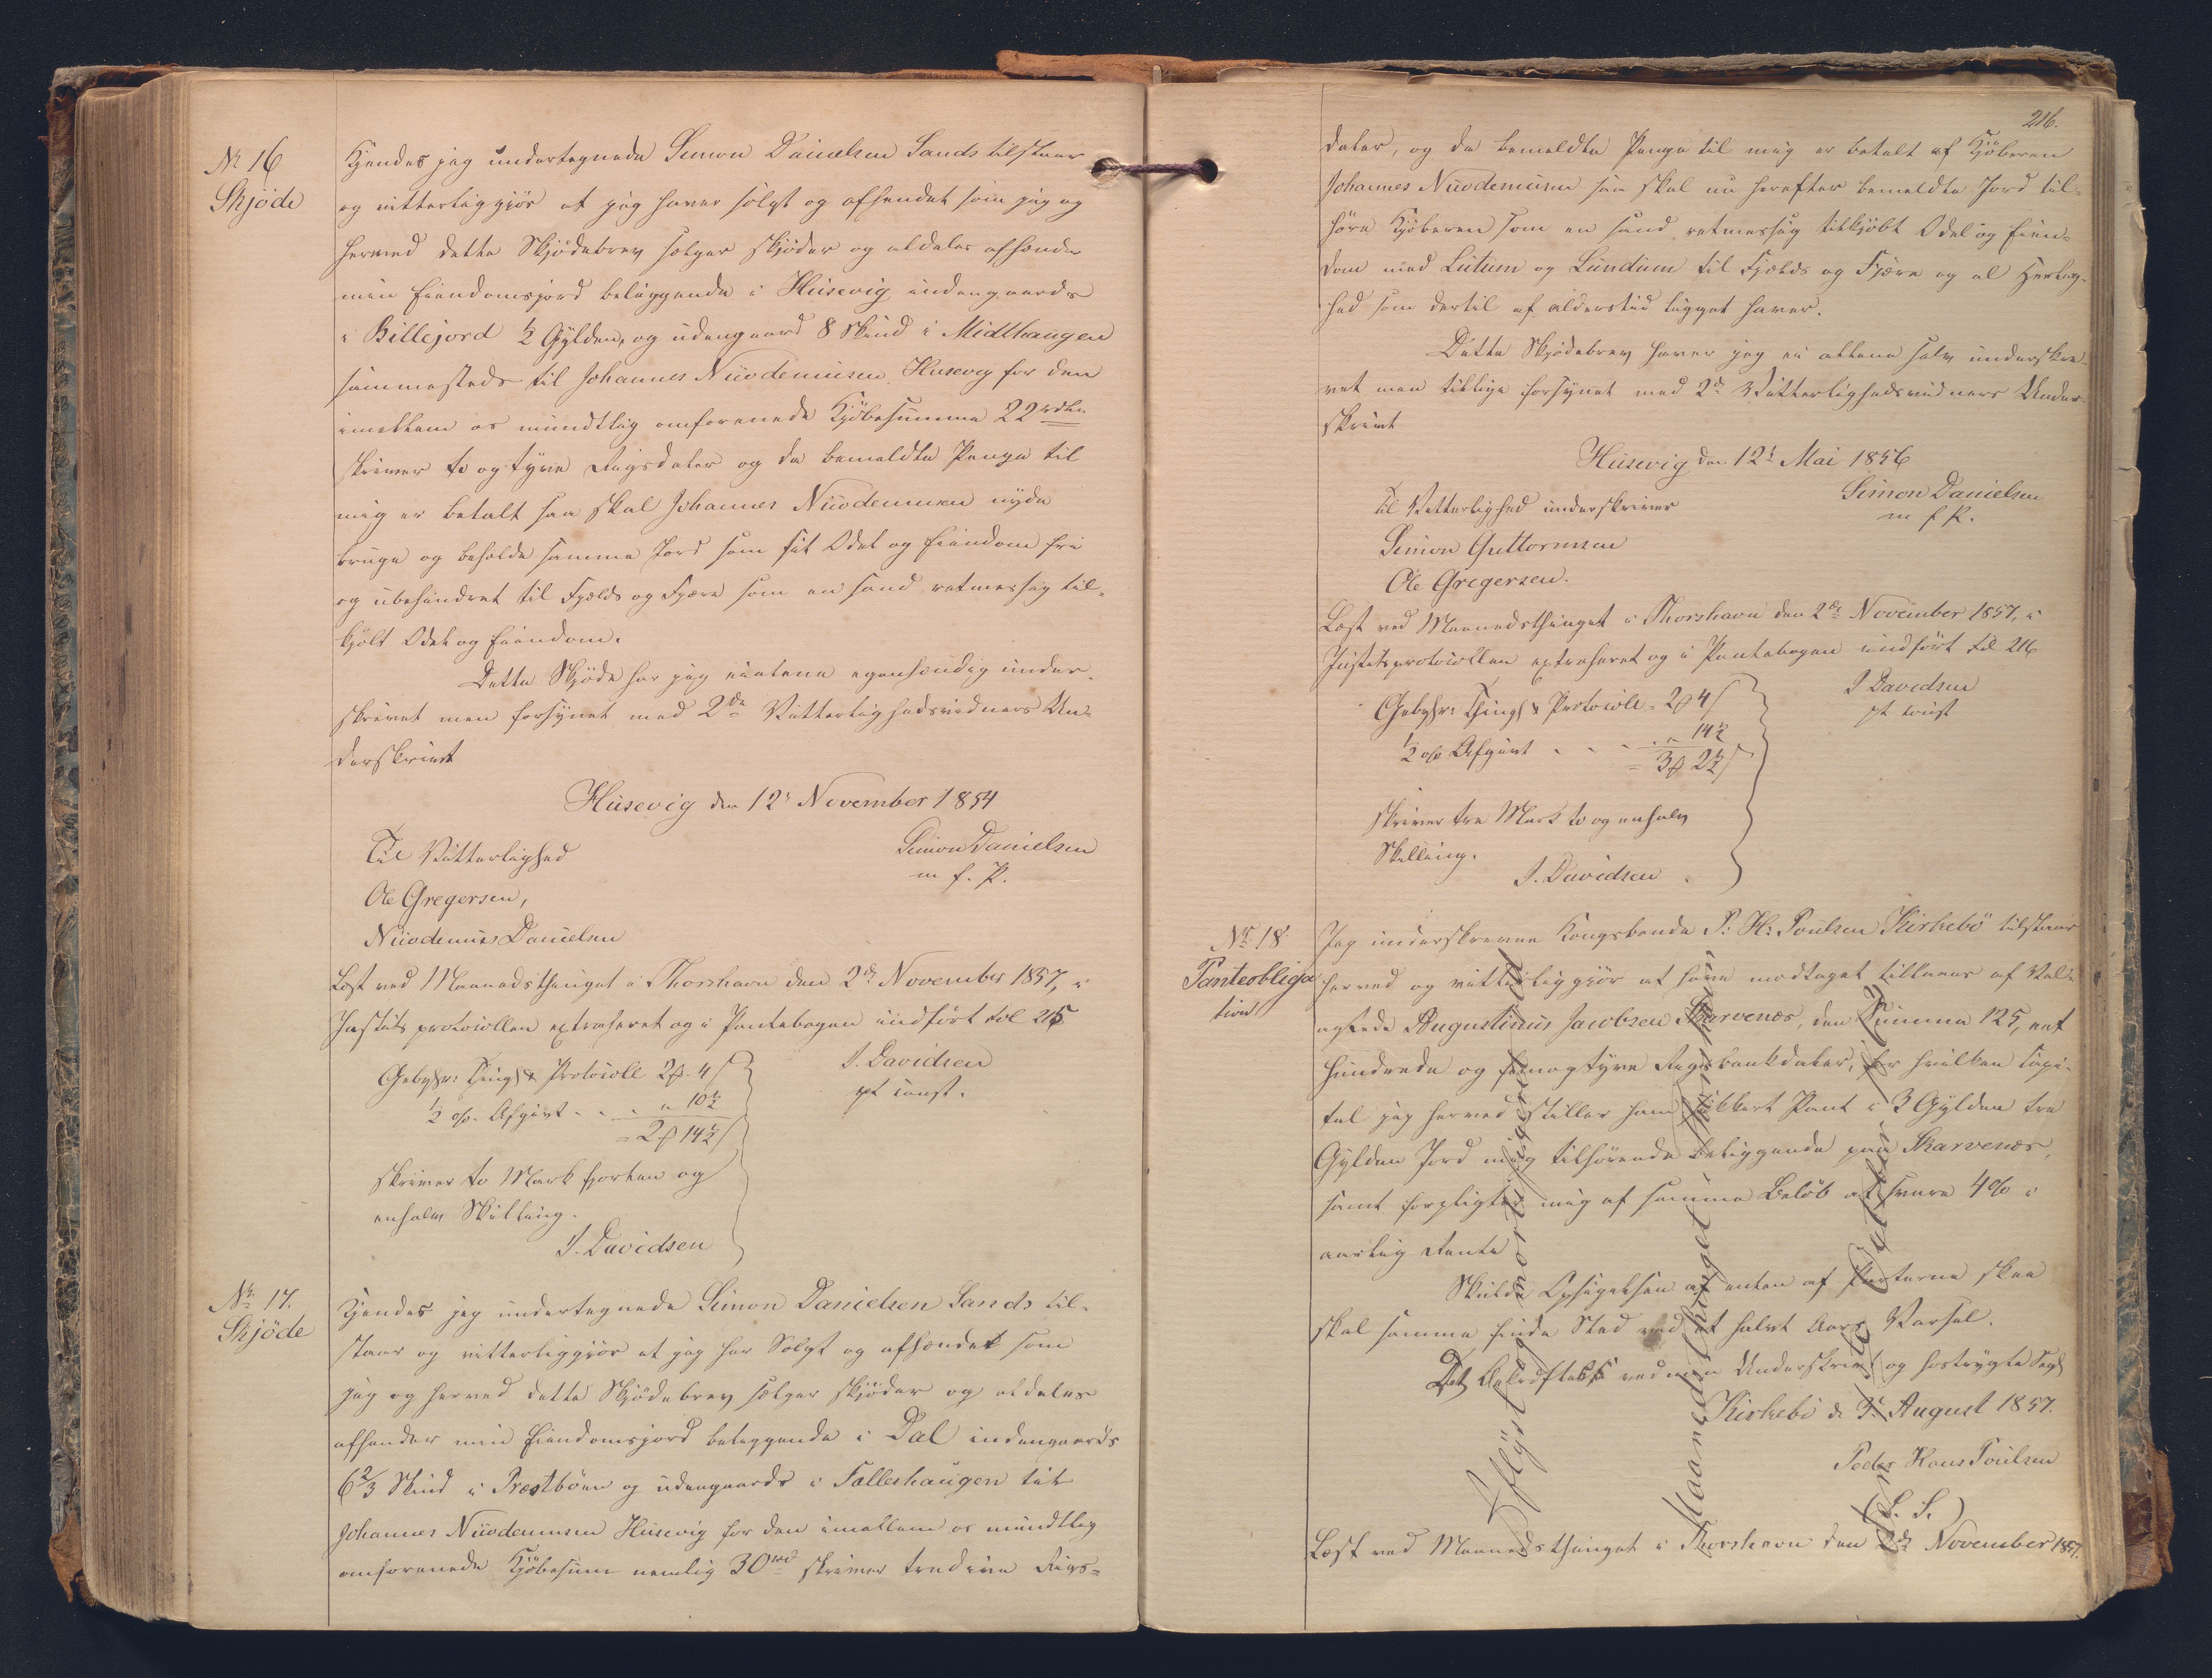 Nr 16
Skjöde
Kjendes jeg undertegnede Simon Danielsen Sands tilstaar
og vitterliggjör at jeg haver solgt og afhendet som jeg og
herved dette Skjödebrev sælger skjöder og aldeles afhende
min Eiendomsjord beliggende i Húsevig indengaards
i Billejord ½ Gylden, og udengaard 8 Skind i Midthaugen
sammesteds til Johannes Nicodemusen Husevig for den
imellem os mundtlig omforenede Kjöbesumma 22 rdlr
skriver to og tyve Rigsdaler og da bemeldte Penge til
mig er betalt saa skal Johannes Nicodemusen nyde
bruge og beholde samme Jord som sit Odel og Eiendom fri
og ubehindret til Fjelds og Fjære som en sand retmessig til-
kjöbt Odel og Eiendom.
Dette Skjöde har jeg eialene egenhændig under-
skrivet men forsynet med 2de Vitterlighedsvidners Un-
derskrivt
Húsevig den 12t November 1854
Til Vitterlighed
Simon Danielsen
m f. P.
Ole Gregersen,
Nicodemus Danielsen
Læst ved Maanedsthinget i Thorshavn den 2de November 1857, i
Justitsprotocollen extraheret og i Pantebogen indfört fol 215
Gebyhr: Thingl & Protocoll 2 β 4 /
J. Davidsen
½ o/o Afgivt . . . " 10½
pt const.
= 2 β 14½ /
skriver to Mark fjorten og
enhalv Skilling.
J. Davidsen
Nr 17.
Skjöde
Kjendes jeg undertegnede Simon Danielsen Sands til-
staar og vitterliggjör at jeg har Solgt og afhændet som
jeg og herved dette Skjödebrev sælger skjöder og aldeles
afhender min Eiendomsjord beliggende i Dal indengaards
6⅔ Skind i Præstböen og udengaards i Falleshaugen til
Johannes Nicodemusen Húsevig for den imellem os mundtlig
omforenede Kjöbesum nemlig 30 rd skriver tredive Rigs-
216.
daler, og da bemeldte Penge til mig er betalt af Kjöberen
Johannes Nicodemusen saa skal nu herefter bemeldte Jord til-
höre Kjöberen som en sand retmessig tilkjöbt Odel og Eien-
dom med Lutum og Lundum til Fjelds og Fjære og al Herlig-
hed som dertil af alderstid ligget haver.
Dette Skjödebrev haver jeg ei allene selv underskre-
vet men tillige forsynet med 2de Vitterlighedsvidners Under-
skrivt
Húsevig den 12t Mai 1856
Til Vitterlighed underskriver
Simon Danielsen
m f P.
Simon Guttormsen
Ole Gregersen.
Læst ved Maanedsthinget i Thorshavn den 2de November 1857, i
Justitsprotocollen extraheret og i Pantebogen indfört fol 216
Gebyhr: Thingl & Protocoll = 2 β 4 /
J Davidsen
pt const
½ o/o Afgivt . . . " 14½
= 3 β 2½ /
skriver tre Mark to og enhalv
Skilling.
J. Davidsen.
Nr 18
Panteobliga
tion
Jeg underskrevne Kongsbonde P: H: Poulsen Kirkebö tilstaar
herved og vitterliggjör at have modtaget tillaans af Vel-
agtede Augustinus Jacobsen Skarvenæs, den Summa 125, eet
hundrede og femogtyve Rigsbankdaler, for hvilken Capi-
tal jeg herved stiller ham sikkert Pant i 3 Gylden tre
Gylden Jord mig tilhörende beliggende paa Skarvenæs,
samt forpligter mig af samme Belöb at svare 4% i
aarlig Rente
Skulde Opsigelsen af enten af Parterne skee
skal samme finde Sted med et halvt Aars Varsel.
Det bekræftes ved min Underskrivt og hostrygte Segl
Kirkebö d 3. August 1857.
Peder Hans Poulsen
(L. S.)
Læst ved Maanedsthinget i Thorshavn den 2de November 1857.
Aflyst og mortificeret ved
Maanedsthinget i Thorshavn